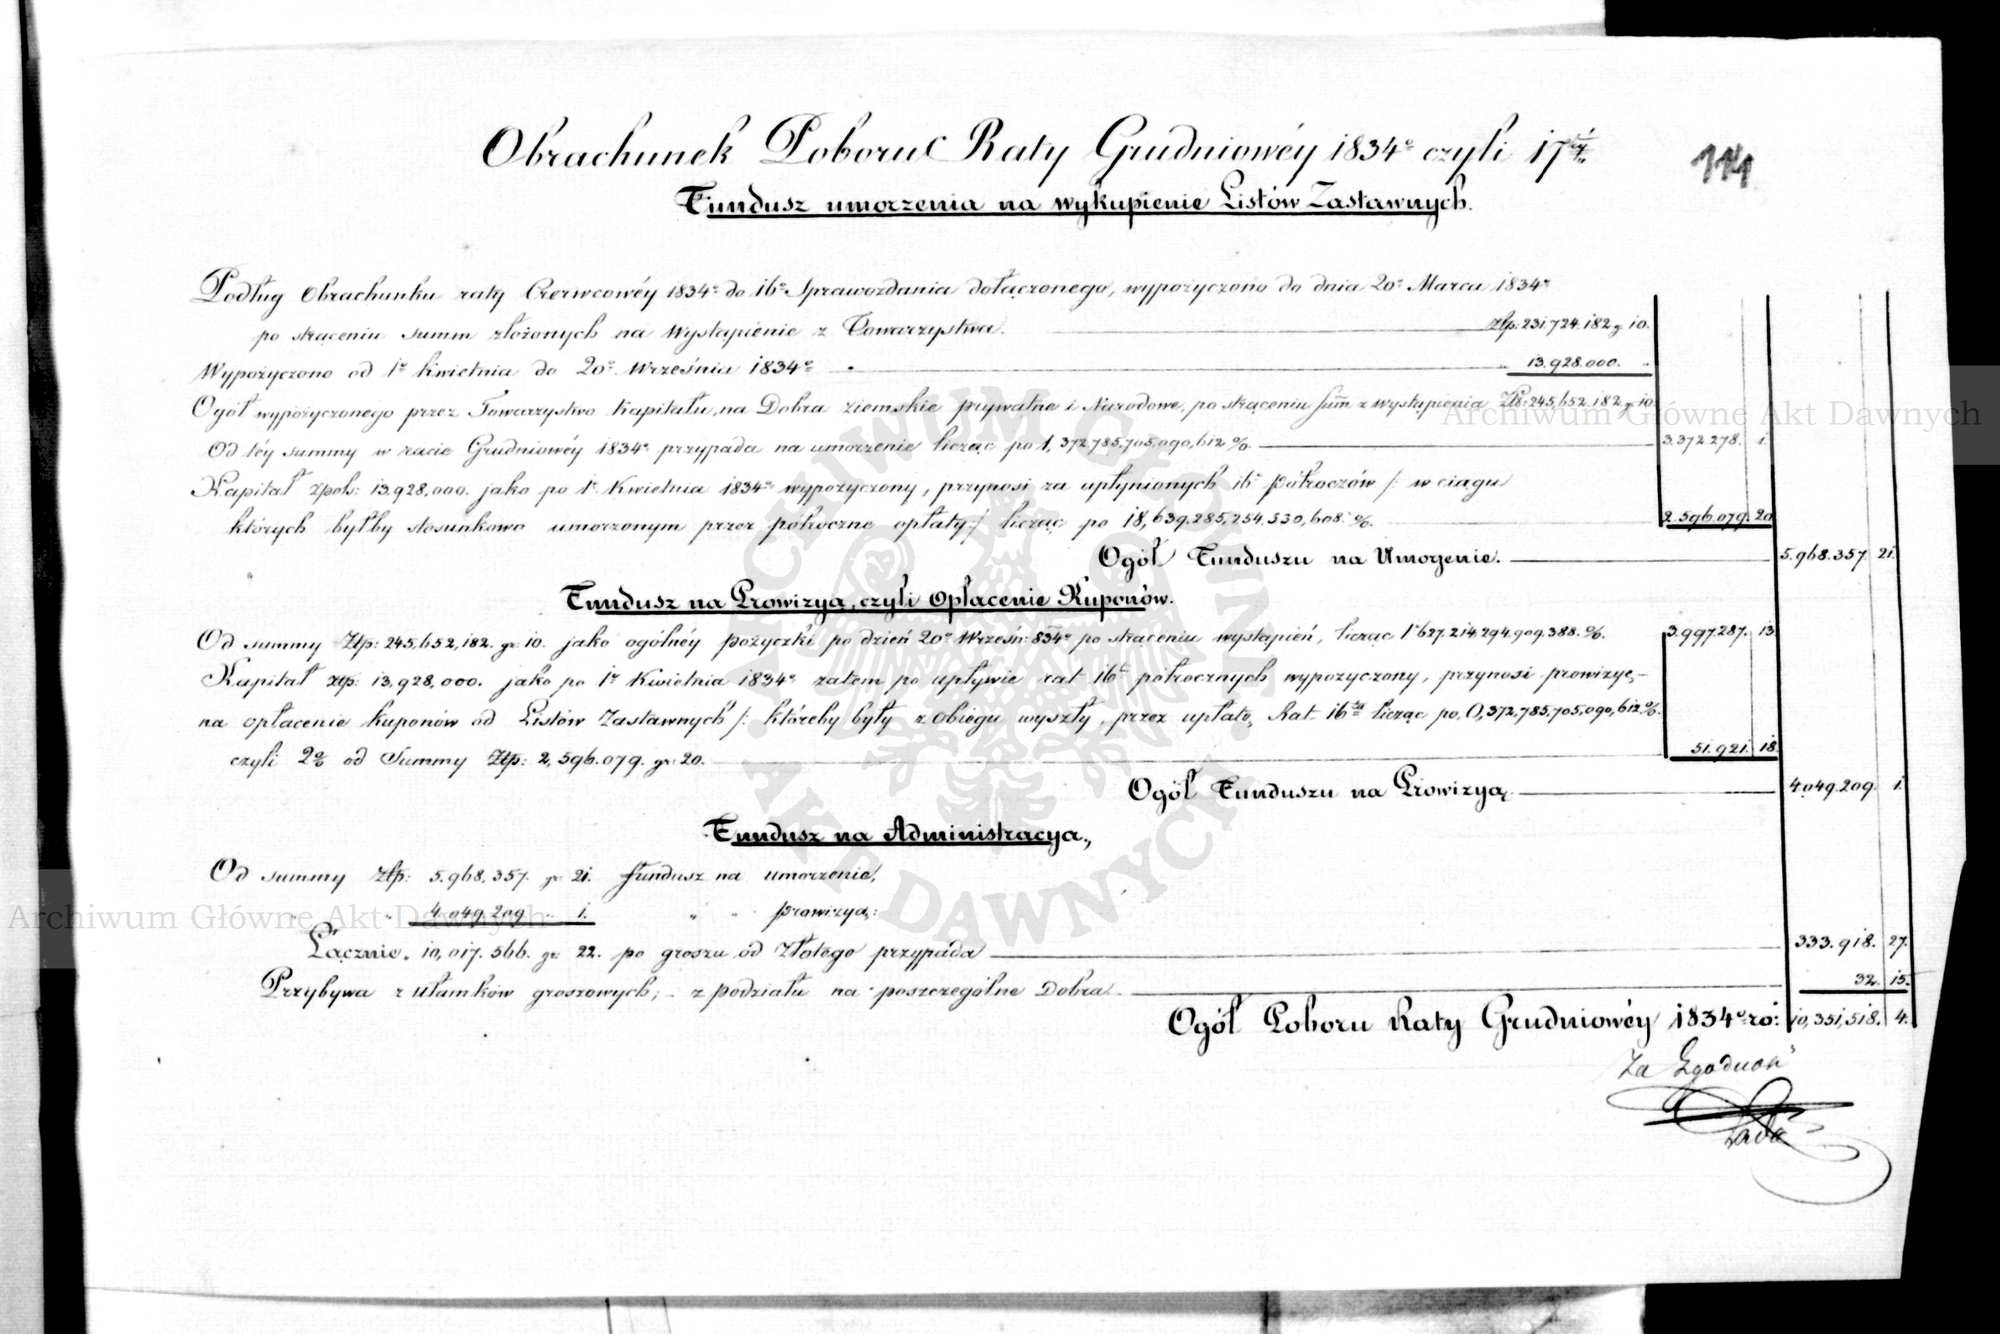 Obrachunek Poboru Raty Grudniowéy 1834° czyli 17téy
114
Fundusz umorzenia na wykupienie Listów Zastawnych.
Podług Obrachunku raty Czerwcowéy 1834° do 16° Sprawozdania dołączonego, wypożyczono do dnia 20° Marca 1834°
po strąceniu summ złożonych na Wystąpienie z Towarzystwa. złp: 231.724.182 g. 10.
Wypożyczono od 1° Kwietnia do 20° Września 1834° 13.928.000.
Ogół wypożyczonego przez Towarzystwo Kapitału, na Dobra ziemskie prywatne i Narodowe, po strąceniu summ z wystąpienia Złp: 245,652.182 g. 10.
Od téy summy w racie Grudniowéy 1834° przypada na umorzenie licząc po 1,372.785,705,090,612 %. 3.372.278. 1.
Kapitał zpols: 13.928,000. jako po 1° Kwietnia 1834° wypożyczony, przynosi za upłynionych 16° półroczów /: w ciągu
których byłby stosunkowo umorzonym przez półroczne opłaty :/ licząc po 18,639.285,254.530,608. %. 2.596.079. 20
Ogół Funduszu na Umorzenie. 5.968.357. 21.
Fundusz na Prowizyą, czyli Opłacenie Kuponów.
Od summy Złp: 245,652,182. gr. 10. jako ogólnéy pożyczki po dzień 20° Wrześn: 834° po strąceniu wystąpień, licząc 1°627.214.294.909.388. %. 3.997.287. 13
Kapitał złp: 13,928,000. jako po 1° Kwietnia 1834° zatem po upływie rat 16tu półrocznych wypożyczony, przynosi prowizyę,-
na opłacenie kuponów od Listów Zastawnych /: któreby były z obiegu wyszły, przez upłatę, Rat 16tu licząc po, 0,372,785,705,090,612 %.
czyli 2% od Summy Złp: 2,596.079. gr. 20. 51.921. 18
Ogół Funduszu na Prowizyą. 4.049.209. 1.
Fundusz na Administracyą.,
Od summy złp: 5.968,357. gr 21. fundusz na umorzenie,
" " 4.049.209 " 1. " " prowizyą.:
Łącznie. 10,017.566. gr 22. po groszu od Złotego przypada 333.918. 27.
Przybywa z ułamków groszowych; - z podziału na poszczególne Dobra. 32. 15.
Ogół Poboru Raty Grudniowéy 1834° ro: 10,351,518. 4.
Za Zgodność
Archiwum Główne Akt Dawnych
Archiwum Główne Akt Dawnych
ARCHIWUM GŁÓWNE
AKT DAWNYCH